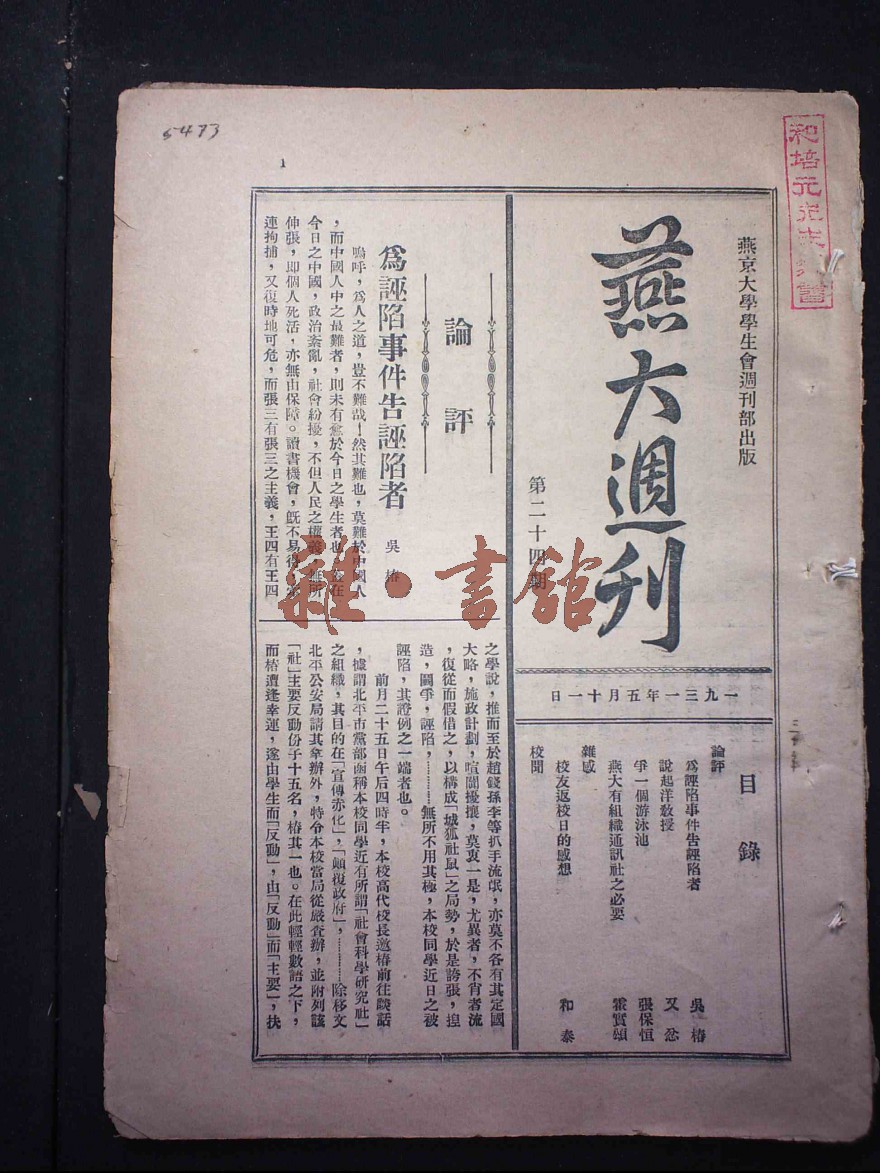 5473
燕京大學學生會週刊部出版
燕大週刊
第二十四期
一九三一年五月十一日
目錄
論評
為誣陷事件告誣陷者 吳椿
說起洋教授 又忿
爭一個游泳池 張保恒
燕大有組織通訊社之必要 霍實頌
雜感
校友返校日的感想 和泰
校聞
論評
爲誣陷事件告誣陷者 吳椿
嗚呼,爲人之道,豈不難哉!然其難也,莫難於中國人
,而中國人中之最難者,則未有愈於今日之學生者也。
今日之中國,政治紊亂,社會紛擾,不但人民之權
伸張,即個人死活,亦無由保障。讀書機會,既不易得,
連拘捕,又復時地可危,而張三有張三之主義,王四有王四
之學說,推而至於趙錢孫李等扒手流氓,亦莫不各有其定國
大略,施政計劃,喧鬧擾攘,莫衷一是,尤異者,不肖者流
,復從而假借之,以構成「城狐社鼠」之局勢,於是誇張,捏
造,鬭爭,誣陷,…………無所不用其極,本校同學近日之被
誣陷,其證例之一端者也。
前月二十五日午后四時半,本校高代校長邀椿前往談話
,據謂北平市黨部函稱本校同學近有所謂「社會科學研究社」
之組織,其目的在「宣傳赤化」,「顛復政府」,…………除移文
北平公安局請其拿辦外,特令本校當局從嚴查辦,並附列該
「社」主要反動份子十五名,椿其一也。在此輕輕數語之下,
而椿遭逢幸運,遂由學生而「反動」,由「反動」而「主要」,扶
雜·書館